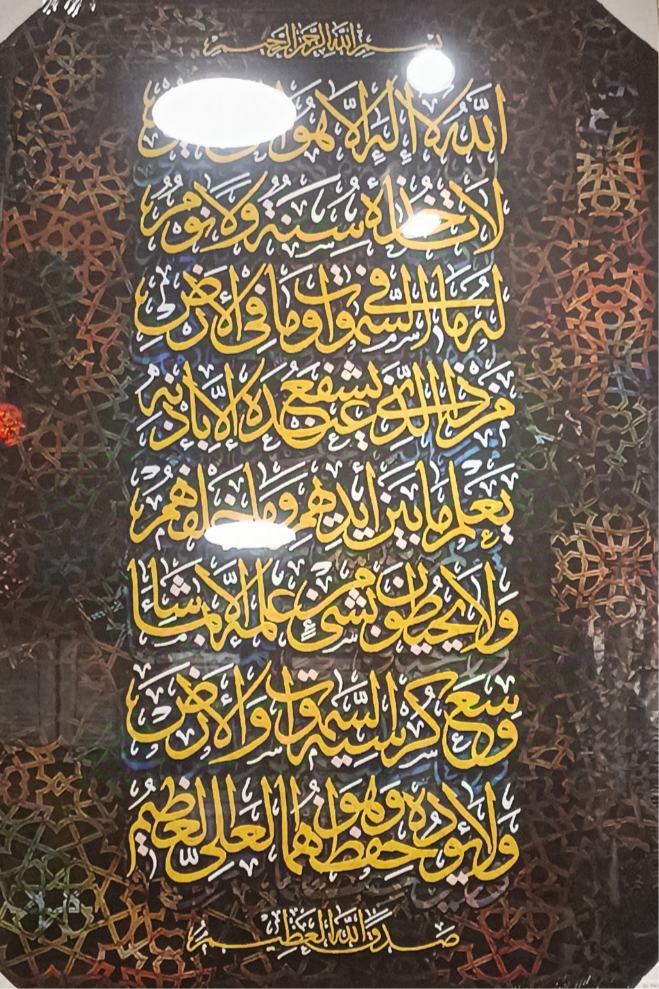 بسم الله الرحمن الرحيم
الله لا إله إلا هو
لا تأخذه سنة ولا نوم
له ما في السموات وما في الأرض
من ذا الذي يشفع عنده إلا بإذنه
يعلم ما بين أيديهم وما خلفهم
ولا يحيطون بشيء من علمه إلا بما شاء
وسع كرسيه السموات والأرض
ولا يؤده حفظهما وهو العلي العظيم
صدق الله العظيم